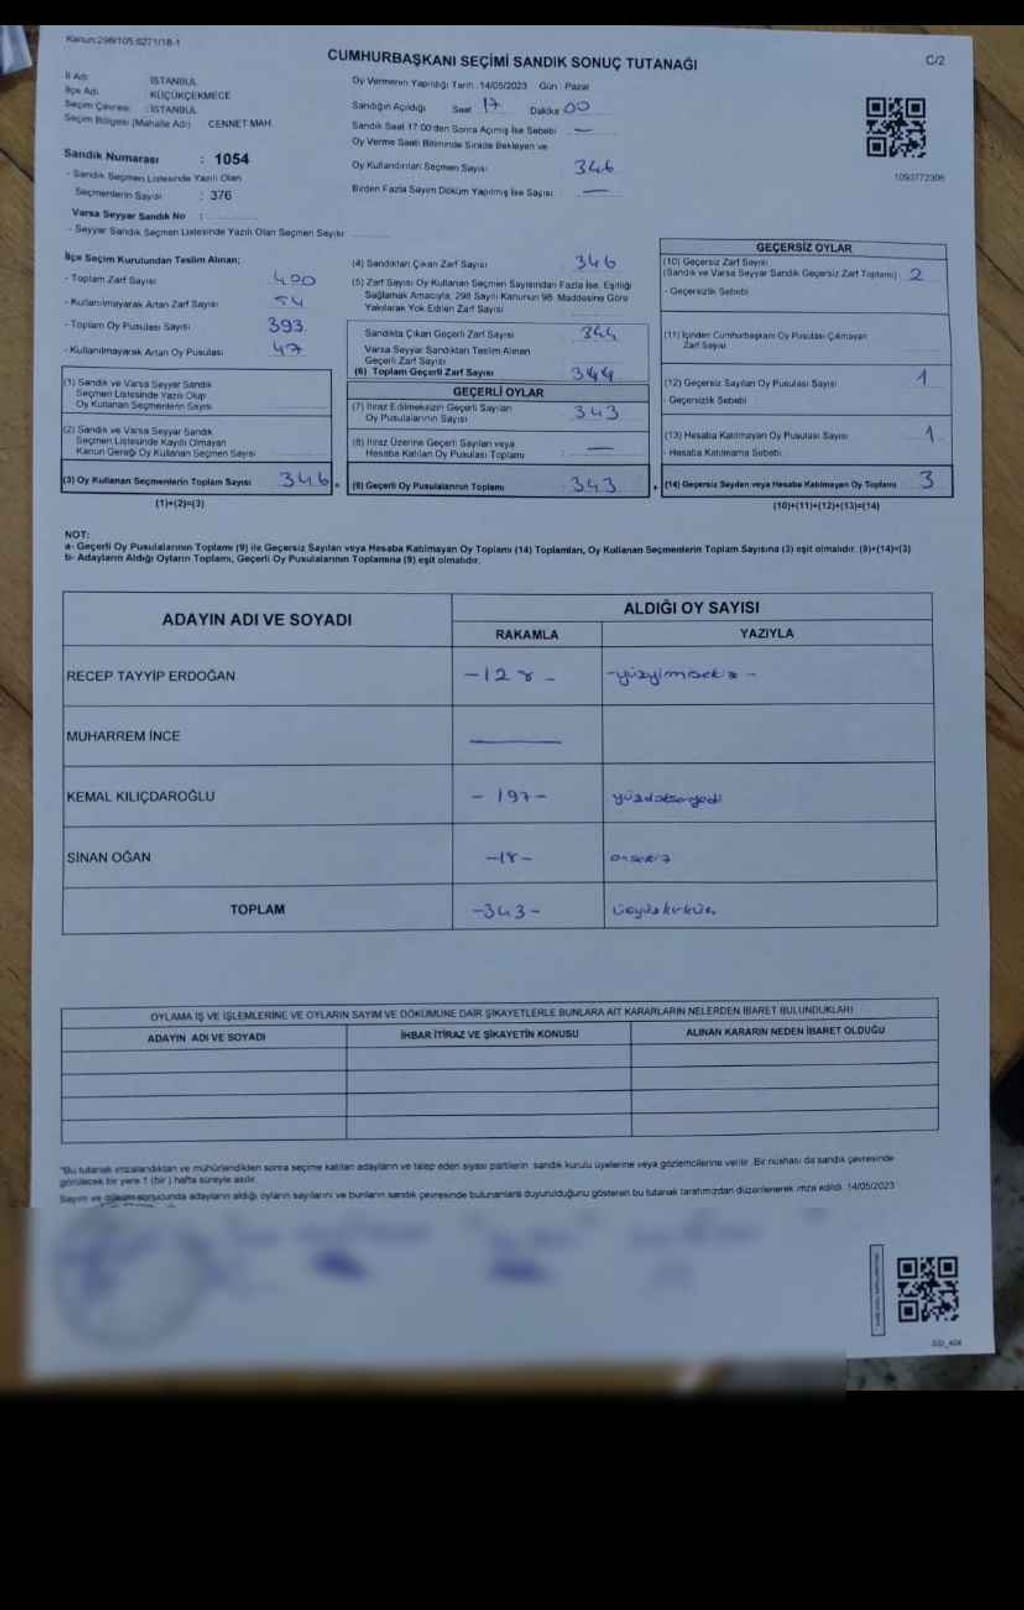 Kanun:298/105,6271/18-1
CUMHURBAŞKANI SEÇİMİ SANDIK SONUÇ TUTANAĞI
C/2
İl Adı : İSTANBUL
İlçe Adı : KÜÇÜKÇEKMECE
Seçim Çevresi : İSTANBUL
Seçim Bölgesi (Mahalle Adı) : CENNET MAH.
Sandık Numarası : 1054
- Sandık Seçmen Listesinde Yazılı Olan
Seçmenlerin Sayısı : 376
Varsa Seyyar Sandık No :
- Seyyar Sandık Seçmen Listesinde Yazılı Olan Seçmen Sayısı
Oy Vermenin Yapıldığı Tarih : 14/05/2023 Gün : Pazar
Sandığın Açıldığı Saat 17 Dakika 00
Sandık Saat 17:00'den Sonra Açılmış İse Sebebi —
Oy Verme Saati Bitiminde Sırada Bekleyen ve
Oy Kullandırılan Seçmen Sayısı 346
Birden Fazla Sayım Döküm Yapılmış İse Sayısı —
1093772306
İlçe Seçim Kurulundan Teslim Alınan;
- Toplam Zarf Sayısı 400
- Kullanılmayarak Artan Zarf Sayısı 54
- Toplam Oy Pusulası Sayısı 393
- Kullanılmayarak Artan Oy Pusulası 47
(1) Sandık ve Varsa Seyyar Sandık
Seçmen Listesinde Yazılı Olup
Oy Kullanan Seçmenlerin Sayısı
(2) Sandık ve Varsa Seyyar Sandık
Seçmen Listesinde Kayıtlı Olmayan
Kanun Gereği Oy Kullanan Seçmen Sayısı
(3) Oy Kullanan Seçmenlerin Toplam Sayısı 346
(1)+(2)=(3)
(4) Sandıktan Çıkan Zarf Sayısı 346
(5) Zarf Sayısı Oy Kullanan Seçmen Sayısından Fazla İse, Eşitliği
Sağlamak Amacıyla, 298 Sayılı Kanunun 98. Maddesine Göre
Yakılarak Yok Edilen Zarf Sayısı
Sandıkta Çıkan Geçerli Zarf Sayısı 344
Varsa Seyyar Sandıktan Teslim Alınan
Geçerli Zarf Sayısı
(6) Toplam Geçerli Zarf Sayısı 344
GEÇERLİ OYLAR
(7) İtiraz Edilmeksizin Geçerli Sayılan
Oy Pusulalarının Sayısı 343
(8) İtiraz Üzerine Geçerli Sayılan veya
Hesaba Katılan Oy Pusulası Toplamı —
(9) Geçerli Oy Pusulalarının Toplamı 343
GEÇERSİZ OYLAR
(10) Geçersiz Zarf Sayısı
(Sandık ve Varsa Seyyar Sandık Geçersiz Zarf Toplamı) 2
- Geçersizlik Sebebi
(11) İçinden Cumhurbaşkanı Oy Pusulası Çıkmayan
Zarf Sayısı
(12) Geçersiz Sayılan Oy Pusulası Sayısı 1
- Geçersizlik Sebebi
(13) Hesaba Katılmayan Oy Pusulası Sayısı 1
- Hesaba Katılmama Sebebi
(14) Geçersiz Sayılan veya Hesaba Katılmayan Oy Toplamı 3
(10)+(11)+(12)+(13)=(14)
NOT:
a- Geçerli Oy Pusulalarının Toplamı (9) ile Geçersiz Sayılan veya Hesaba Katılmayan Oy Toplamı (14) Toplamları, Oy Kullanan Seçmenlerin Toplam Sayısına (3) eşit olmalıdır. (9)+(14)=(3)
b- Adayların Aldığı Oyların Toplamı, Geçerli Oy Pusulalarının Toplamına (9) eşit olmalıdır.
ADAYIN ADI VE SOYADI ALDIĞI OY SAYISI
RAKAMLA YAZIYLA
RECEP TAYYİP ERDOĞAN -128- -yüzyirmisekiz-
MUHARREM İNCE —
KEMAL KILIÇDAROĞLU -197- yüzdoksanyedi
SİNAN OĞAN -18- onsekiz
TOPLAM -343- üçyüzkırküç
OYLAMA İŞ VE İŞLEMLERİNE VE OYLARIN SAYIM VE DÖKÜMÜNE DAİR ŞİKAYETLERLE BUNLARA AİT KARARLARIN NELERDEN İBARET BULUNDUKLARI
ADAYIN ADI VE SOYADI İHBAR İTİRAZ VE ŞİKAYETİN KONUSU ALINAN KARARIN NEDEN İBARET OLDUĞU
"Bu tutanak imzalandıktan ve mühürlendikten sonra seçime katılan adayların ve talep eden siyasi partilerin sandık kurulu üyelerine veya gözlemcilerine verilir. Bir nüshası da sandık çevresinde
görülecek bir yere 1 (bir) hafta süreyle asılır.
Sayım ve döküm sonucunda adayların aldığı oyların sayılarını ve bunların sandık çevresinde bulunanlara duyurulduğunu gösteren bu tutanak tarafımızdan düzenlenerek imza edildi. 14/05/2023